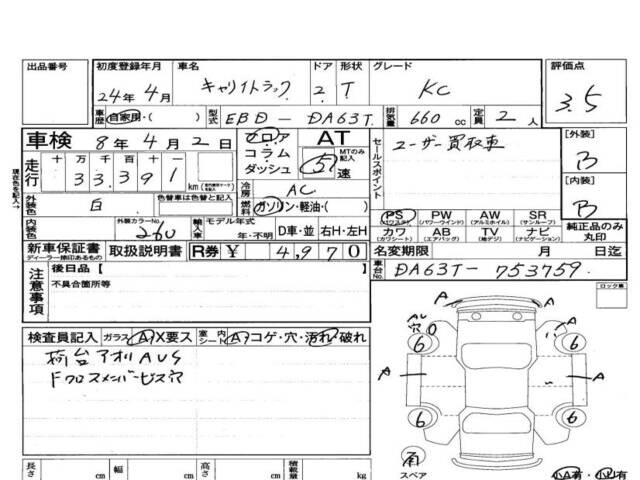 出品番号 初度登録年月 車名 ドア 形状 グレード 評価点
24年4月 キャリイトラック 2 T KC 3.5
車歴 自家用・( ) 型式 EBD-DA63T 排気量 660 cc 定員 2人
車検 8年4月2日 フロア AT ユーザー買取車 [外装] B
走行 十 万 千 百 十 一 km コラム MTのみ記入 セールスポイント
33,391 ダッシュ 5 速
冷房 AC [内装] B
外装色 白 色替車は色替と記入 燃料 ガソリン・軽油・( )
現在色を記入
内装色 外装カラーNo. 26U 輸入車 モデル年式 年・不明 D車・並 右H・左H
PS PW AW SR 純正品のみ丸印
(パワステ) (パワーウインド) (アルミホイル) (サンルーフ)
カワ AB TV ナビ
(カワシート) (エアバッグ) (地デジ) (ナビゲーション)
新車保証書 取扱説明書 R券 ¥ 4,970 名変期限 月 日迄
ディーラー捺印あるもの
注意事項 後日品[ ] 車台No. DA63T-753759
不具合箇所等 ロック票
検査員記入 ガラス A X要ス 室内シート A コゲ・穴・汚れ・破れ
荷台アオリAUS
FクロスメンバービスÞ穴
A A
AU 穴
6 6
A A
6 6
スペア
長さ cm 幅 cm 高さ cm 積載量 kg 小A有・小U有